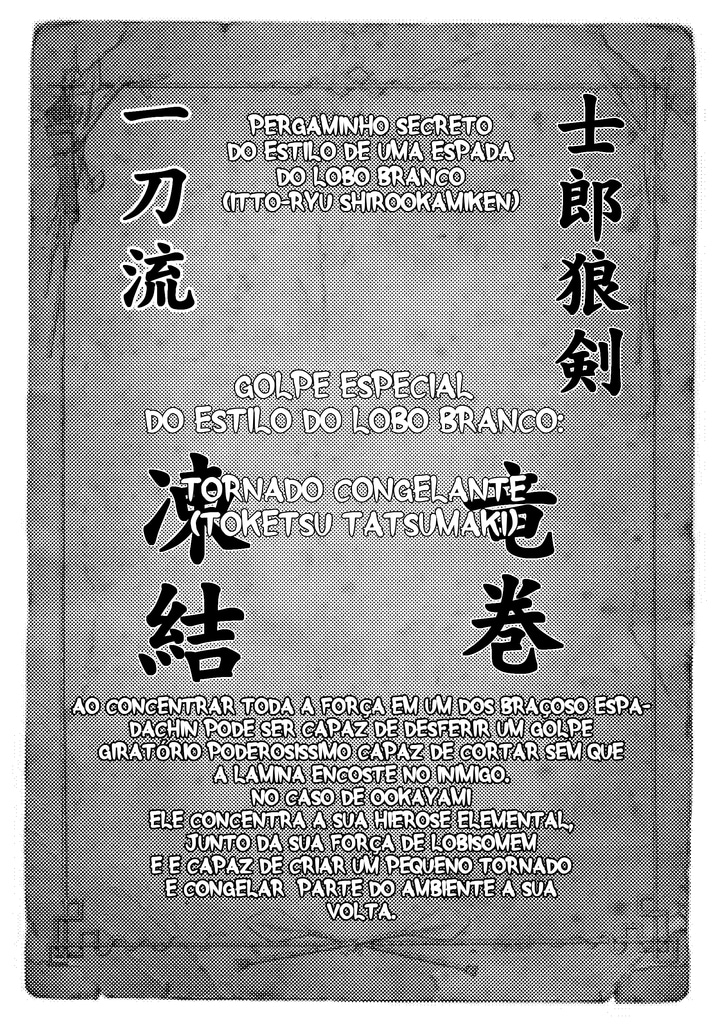 一刀流
士郎狼剣
PERGAMINHO SECRETO
DO ESTILO DE UMA ESPADA
DO LOBO BRANCO
(ITTO-RYU SHIROOKAMIKEN)
GOLPE ESPECIAL
DO ESTILO DO LOBO BRANCO:
TORNADO CONGELANTE
(TOKETSU TATSUMAKI)
凍結
竜巻
AO CONCENTRAR TODA A FORÇA EM UM DOS BRAÇOSO ESPA-
DACHIN PODE SER CAPAZ DE DESFERIR UM GOLPE
GIRATÓRIO PODEROSISSIMO CAPAZ DE CORTAR SEM QUE
A LAMINA ENCOSTE NO INIMIGO.
NO CASO DE OOKAYAMI
ELE CONCENTRA A SUA HIEROSE ELEMENTAL,
JUNTO DA SUA FORÇA DE LOBISOMEM
E E CAPAZ DE CRIAR UM PEQUENO TORNADO
E CONGELAR PARTE DO AMBIENTE A SUA
VOLTA.